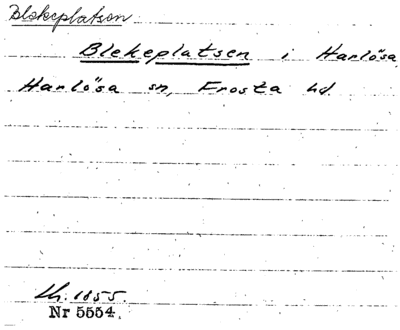 Blekeplatsen
Blekeplatsen i Harlösa,
Harlösa sn, Frosta hd.
Lh. 1855.
Nr 5554.